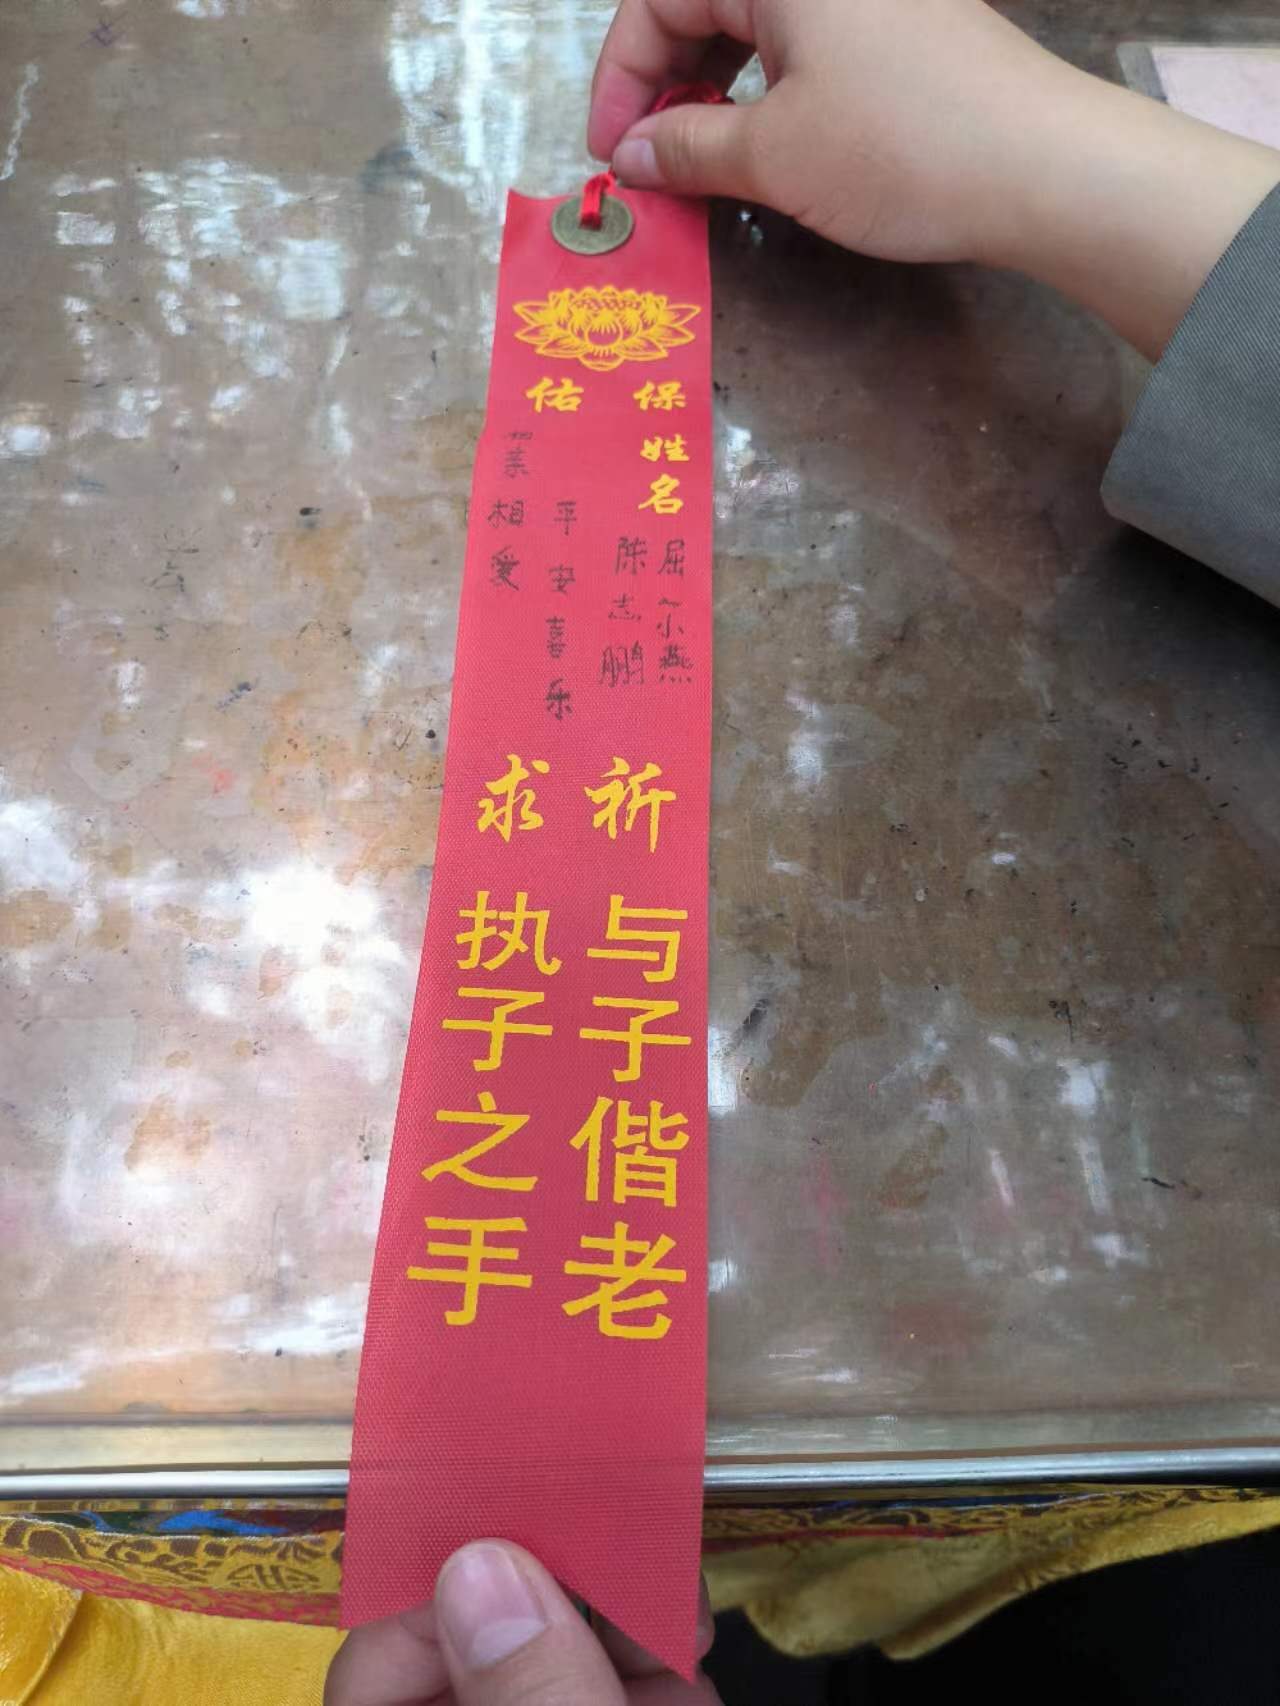 保佑
姓名
屈小燕
陈志鹏
平安喜乐
相爱
祈求
与子偕老
执子之手